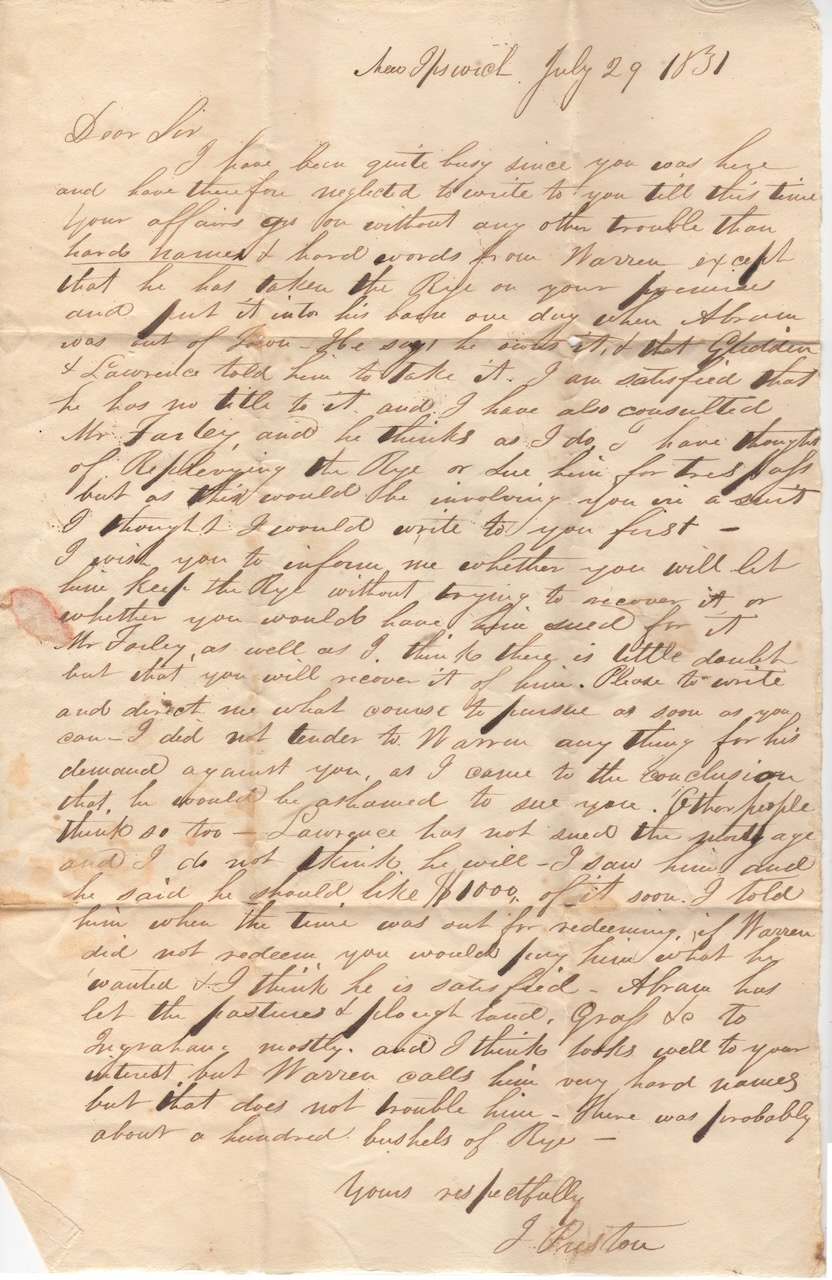 New Ipswich July 29 1831
Dear Sir
I have been quite busy since you was here
and have therefore neglected to write to you till this time
Your affairs go on without any other trouble than
hard names & hard words from Warren except
that he has taken the Rye on your premises
and put it into his barn one day when Abram
was out of Town - He says he owns it, & that Glidden
& Lawrence told him to take it. I am satisfied that
he has no title to it. and I have also consulted
Mr Farley, and he thinks as I do, I have thought
of Replevying the Rye or sue him for tresspass
but as this would be involving you in a suit
I thought I would write to you first -
I wish you to inform me whether you will let
him keep the Rye without trying to recover it or
whether you would have him sued for it
Mr Farley, as well as I, think there is little doubt
but that you will recover it of him. Please to write
and direct me what course to pursue as soon as you
can - I did not tender to Warren any thing for his
demand against you, as I came to the conclusion
that he would be ashamed to sue you. Other people
think so too - Lawrence has not sued the mortgage
and I do not think he will - I saw him and
he said he should like $1000, of it soon. I told
him when the time was out for redeeming, if Warren
did not redeem you would pay him what he
wanted & I think he is satisfied - Abram has
let the pastures & plough land, Grass &c to
Ingraham, mostly. and I think looks well to your
interest but Warren calls him very hard names
but that does not trouble him - There was probably
about a hundred bushels of Rye -
Yours respectfully
J Preston